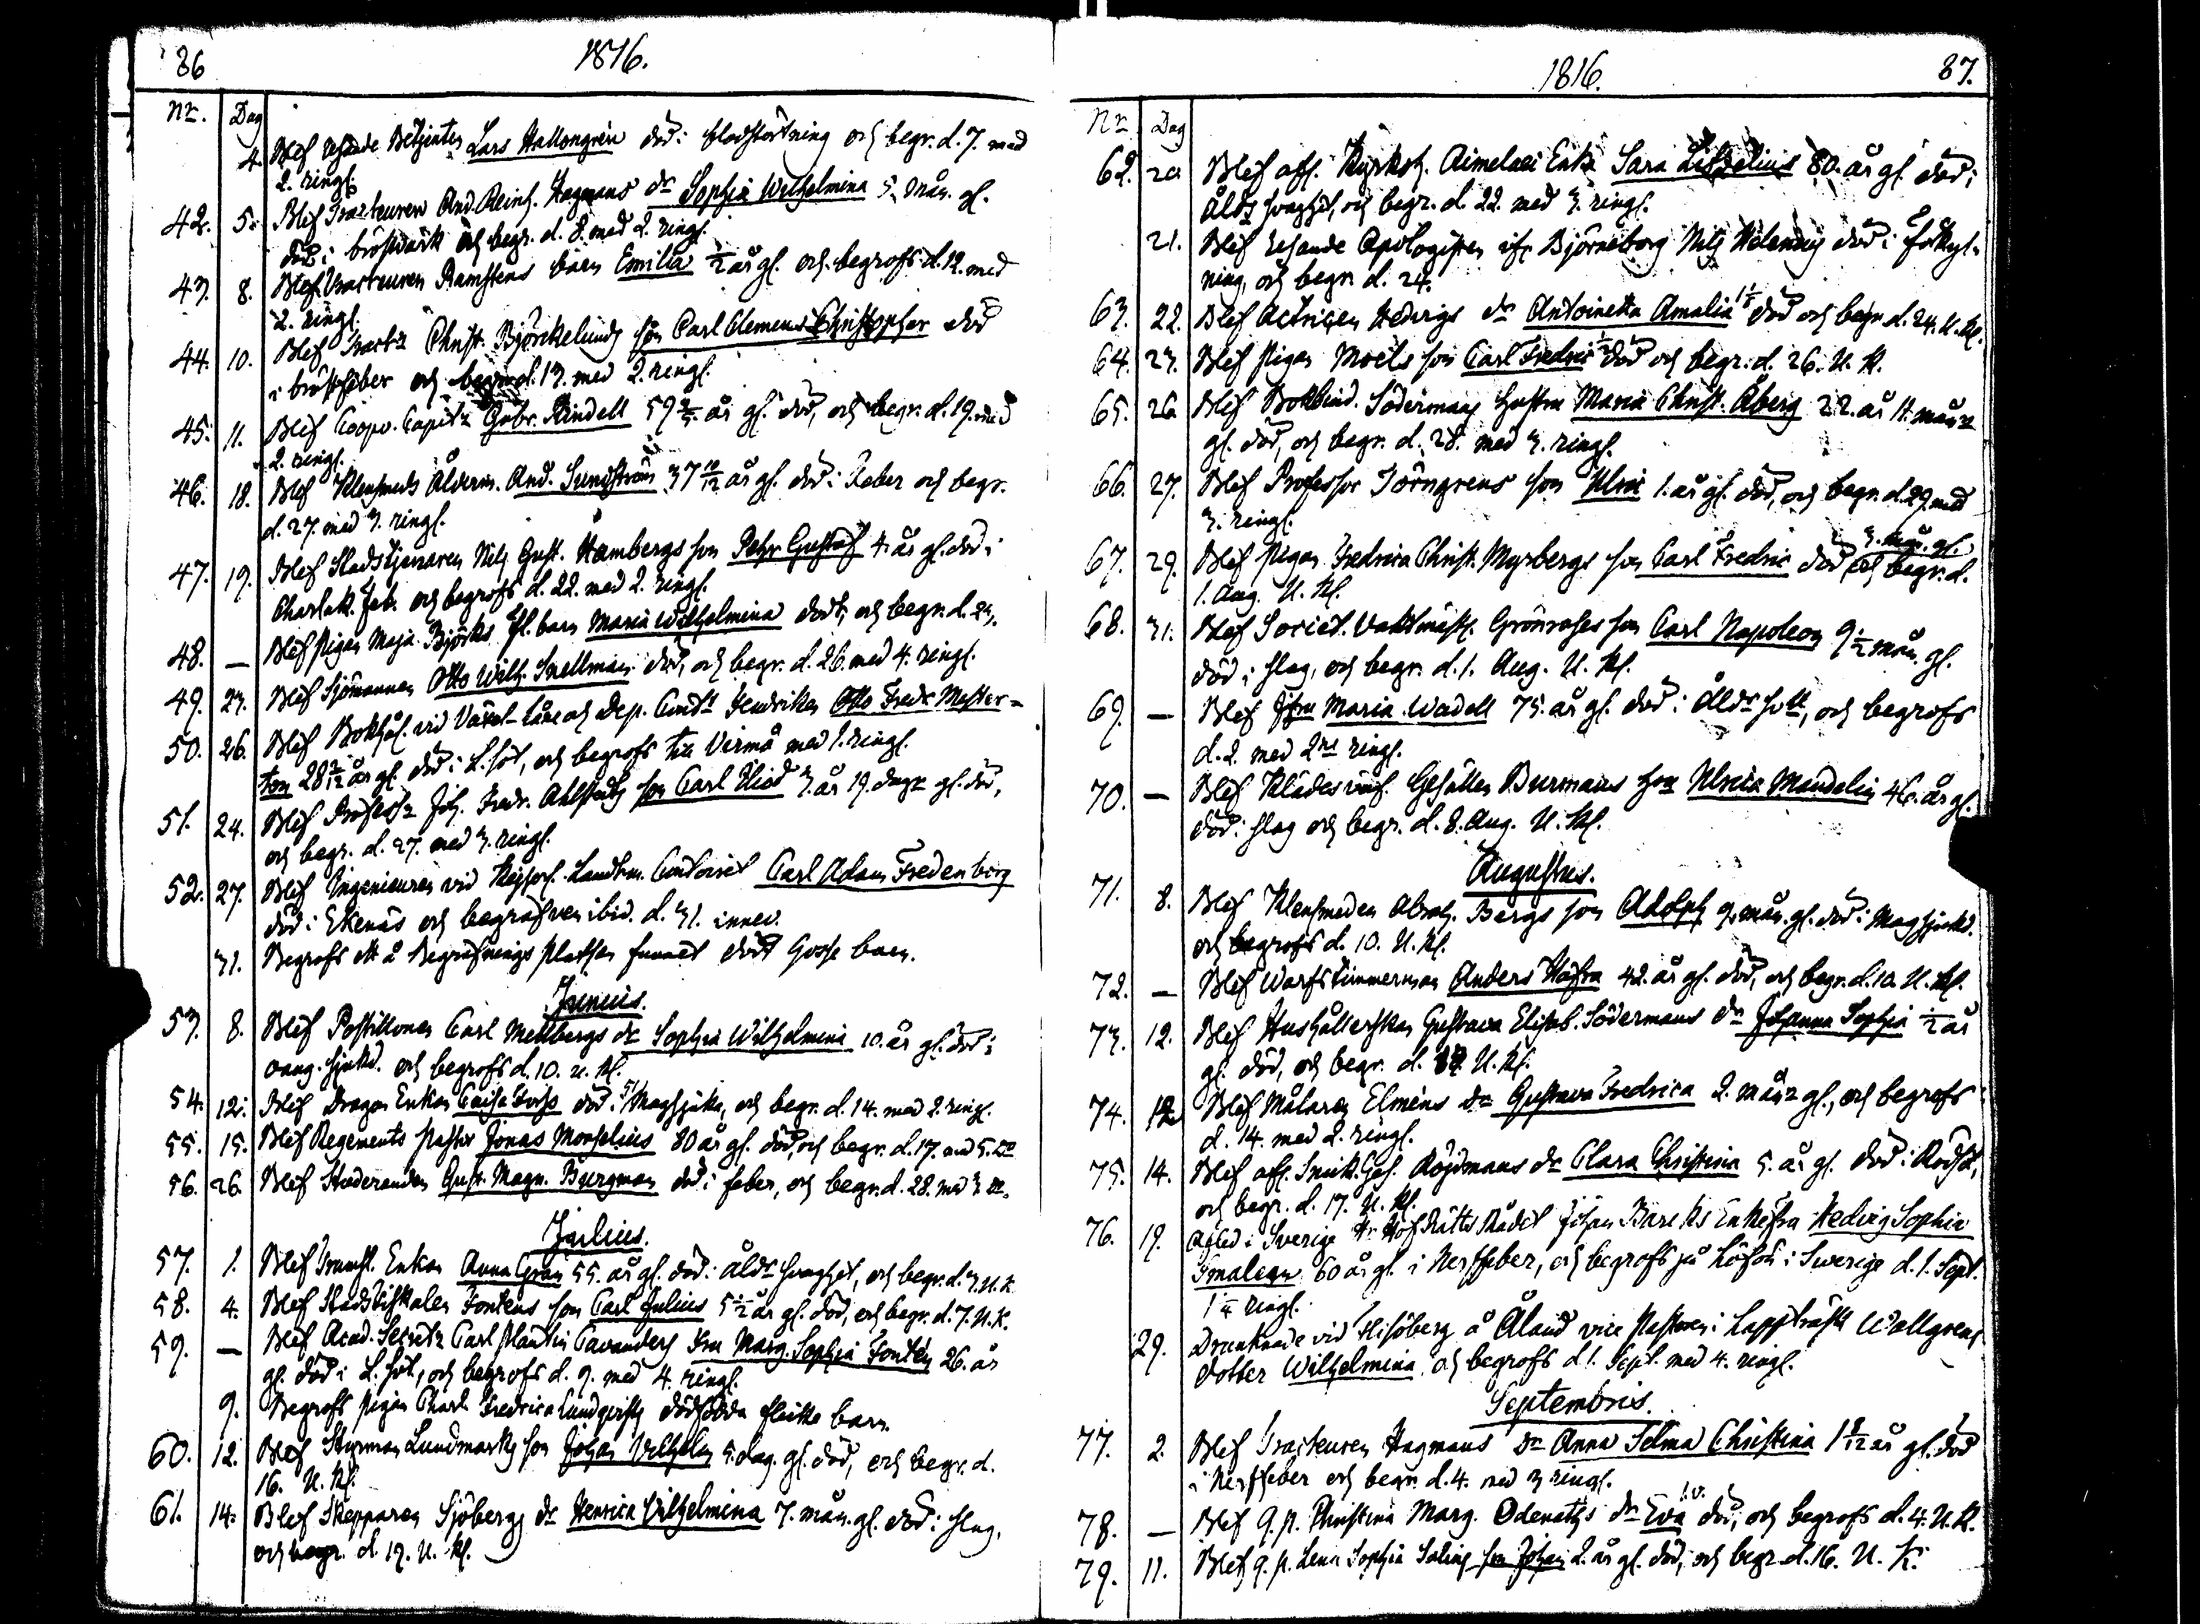 86
1816.
Nr. Dag
4. Blef resande Betjenten Lars Hallongren död i blodstörtning och begr. d. 7. med
2. ringn.
42. 5. Blef Tracteuren And. Reinh. Hagmans dr Sophia Wilhelmina 5. mån. gl.
död i bröstvärk och begr. d. 8 med 2. ringn.
43. 8. Blef Tracteuren Ramstens barn Emilia 1/2 år gl. och begrofs d. 12. med
2. ringn.
44. 10. Blef Christ. Björckelunds son Carl Clemens Christopher död
i bröstfeber och begr. d. 13. med 2. ringn.
45. 11. Blef Coopv. Capit. Gabr. Rindell 59 år gl. död, och begr. d. 19. med
2. ringn.
46. 18. Blef Klensmeds Ålderm. And. Sundström 37 10/12 år gl. död i Feber och begr.
d. 27. med 3. ringn.
47. 19. Blef Stadstjenaren Nils Gust. Hambergs son Pehr Gustaf 4. år gl. död i
Charlak. feb. och begrofs d. 22. med 2. ringn.
48. — Blef Pigan Maja Björks fl. barn Maria Wilhelmina dödt, och begr. d. 23.
49. 23. Blef Sjömannen Otto Wilh. Snellman död, och begr. d. 26. med 4. ringn.
50. 26. Blef Bokhål. vid Växel-Låne och Dep. Cont. Hendriken Otto Fredr. Mester-
ton 28 år gl. död i L. sot, och begrofs till Virmå med 1. ringn.
51. 24. Blef Profess. Joh. Fredr. Ahlstedts son Carl 3. år 19. dagar gl. död,
och begr. d. 27. med 3. ringn.
52. 27. Blef Ingenieuren vid Kejserl. Landtm. Contoiret Carl Adam Fredenberg
död i Ekenäs och begrafven ibid. d. 31. innev.
31. Begrofs ett å Begrafnings platsen funnet dödt Gosse barn.
Junius.
53. 8. Blef Postillonen Carl Mellbergs dr Sophia Wilhelmina 10. år gl. död i
och begrofs d. 10. U. Kl.
54. 12. Blef Dragon Enkan Caisa död i 51 Magsjuka, och begr. d. 14. med 2. ringn.
55. 15. Blef Regements Pastor Jonas Monselius 80 år gl. död, och begr. d. 17. med 5.
56. 26. Blef Studeranden Gust. Magn. Bergman död i feber, och begr. d. 28. med 3
Julius.
57. 1. Blef Enkan Anna Grön 55. år gl. död i ålds svaghet, och begr. d. 3. U. K.
58. 4. Blef Stadsfiskalen Fonténs son Carl Julius 5 1/2 år gl. död, och begr. d. 7. U. K.
59. — Blef Acad. Secret. Carl Plantin Cavanders Fru Marg. Sophia Fontén 26. år
gl. död i L. sot, och begrofs d. 9. med 4. ringn.
9. Begrofs pigan Charl. Fredrica Lundqvists dödfödda flicke barn.
60. 12. Blef Styrman Lundmarks son Johan Vilhelm 5. dag. gl. död, och begr. d.
16. U. Kl.
61. 14. Blef Skepparen Sjöbergs dr Henrica Vilhelmina 7. mån. gl. död i slag,
och begr. d. 19. U. Kl.
1816.
87.
Nr Dag
62. 20 Blef afl. Kyrkoh. Aimelaei Enka Sara 80. år gl. död i
Ålds svaghet, och begr. d. 22. med 3. ringn.
21. Blef resande Apologisten ifr. Björneborg Nils Helenius död i förkyl-
ning, och begr. d. 24.
63. 22. Blef Actricen Hedvigs dr Antoinetta Amalia död och begr. d. 24. U. Kl.
64. 23. Blef Pigan Moëls son Carl Fredric 1/2 död och begr. d. 26. U. K.
65. 26 Blef Bokbind. Södermans hustru Maria Christ. Åberg 22. år 11. mån
gl. död, och begr. d. 28. med 3. ringn.
66. 27. Blef Professor Törngrens son Ulric 1. år gl. död, och begr. d. 29. med
3. ringn.
67. 29. Blef Pigan Fredrica Christ. Myrbergs son Carl Fredric död 3. mån. gl. och begr. d.
1. Aug. U. Kl.
68. 31. Blef Societ. Vaktmäst. Grönroses son Carl Napoleon 9 1/2 mån. gl.
död i slag, och begr. d. 1. Aug. U. Kl.
69. — Blef Jfru Maria Wadell 75. år gl. död i Ålds svtt, och begrofs
d. 2. med 2ne ringn.
70. — Blef Klädesväf. Gesällen Burmans hru Ulrica Mandelin 46. år gl.
död i slag och begr. d. 8. Aug. U. Kl.
Augustus.
71. 8. Blef Klensmeden Abrah. Bergs son Adolph 9. mån. gl. död i Magsjukd.
och begrofs d. 10. U. Kl.
72. — Blef Warfstimmerman Anders Hafra 42. år gl. död, och begr. d. 10. U. Kl.
73. 12. Blef Hushållerskan Gustava Elisab. Södermans dr Johanna Sophia 1/2 år
gl. död, och begr. d. U. Kl.
74. 12 Blef Målaren Elméns dr Gustava Fredrica 2. mån gl., och begrofs
d. 14. med 2. ringn.
75. 14. Blef afl. Snick. Ges. Röjdmans dr Clara Christina 5. år gl. död i Rödsot,
och begr. d. 17. U. Kl.
76. 19. Afled i Sverige Hr Hof Rätts Rådet Johan Bareks Enkefru Hedvig Sophia
60 år gl. i Nerffeber, och begrofs på Löfön i Swerige d. 1. Sept.
1/4 ringn.
29. Drunknade vid Hisöberg å Åland vice Pastoren i Lappträsk Wallgrens
dotter Wilhelmina och begrofs d. 1. Sept. med 4. ringn.
Septembris.
77. 2. Blef Tracteuren Hagmans dr Anna Selma Christina 1 8/12 år gl. död
i Nerffeber och begr. d. 4. med 3 ringn.
78. — Blef q. p. Christina Marg. Odenaths dr Eva 1. v. död, och begrofs d. 4. U. K.
79. 11. Blef q. p. Lena Sophia Salins son Johan 2. år gl. död, och begr. d. 16. U. K.